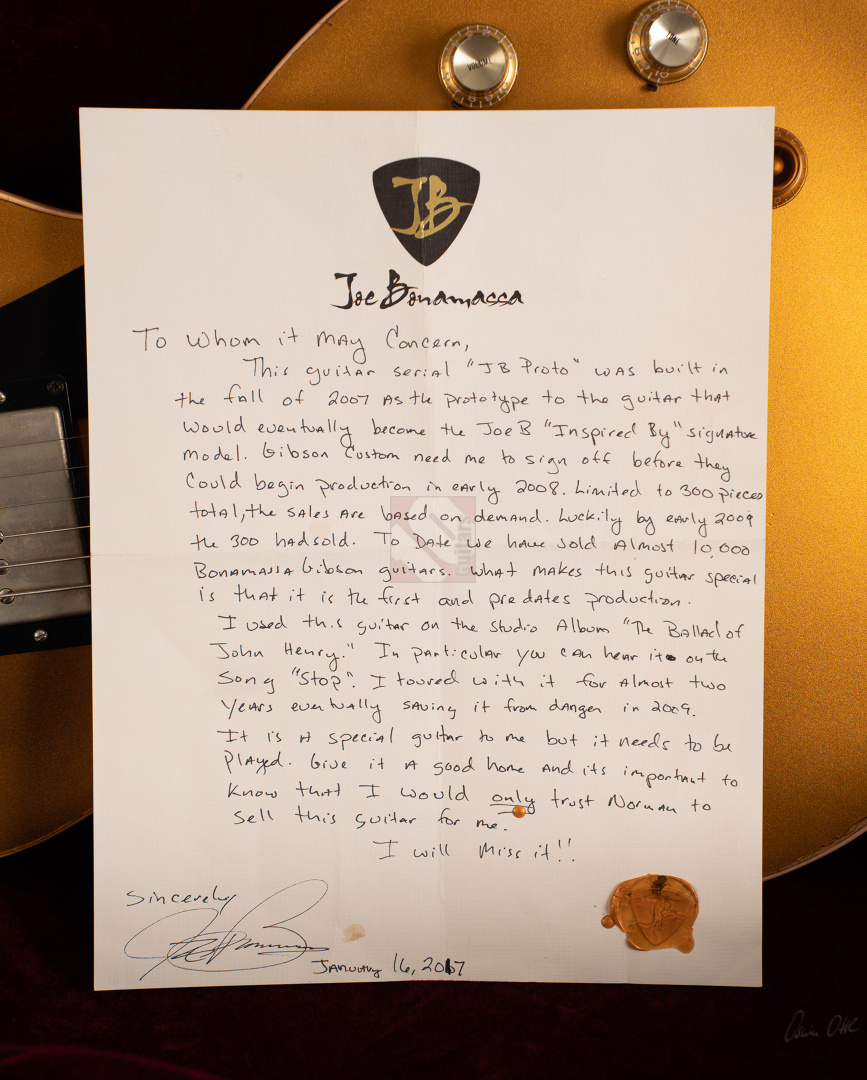 VOLUME
TONE
JB
Joe Bonamassa
To Whom it May Concern,
This guitar serial "JB Proto" was built in
the fall of 2007 As the prototype to the guitar that
would eventually become the Joe B "Inspired By" signature
model. Gibson Custom need me to sign off before they
Could begin production in early 2008. Limited to 300 pieces
total, the sales are based on demand. Luckily by early 2009
the 300 had sold. To Date we have sold Almost 10,000
Bonamassa Gibson guitars. What makes this guitar special
is that it is the first and pre dates production.
I used this guitar on the studio Album "The Ballad of
John Henry." In particular you can hear it on the
Song "Stop". I toured with it for Almost two
Years eventually saving it from danger in 2009.
It is A special guitar to me but it needs to be
Played. Give it A good home And its important to
Know that I would only trust Norman to
Sell this guitar for me.
I will Miss it!!
Sincerely
January 16, 2017
Guitars